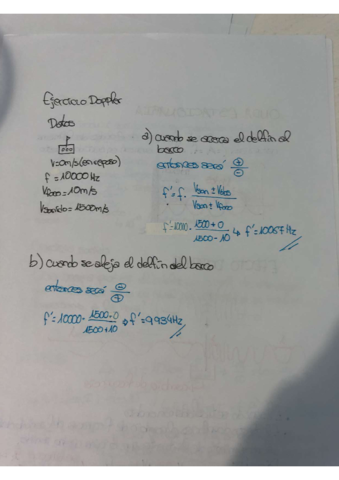 Ejercicio Doppler
Datos
v=0m/s (en reposo)
f = 10000 Hz
Vfoco = 10m/s
Vsonido = 1500m/s
a) cuando se acerca el delfín al
barco
entonces será +/-
f' = f · Vson ± Vobs / Vson ± Vfoco
f'=1000 · 1500 + 0 / 1500 - 10 → f' = 10067 Hz
b) cuando se aleja el delfín del barco
entonces será -/+
f' = 10000 · 1500 - 0 / 1500 + 10 → f' = 9934 Hz